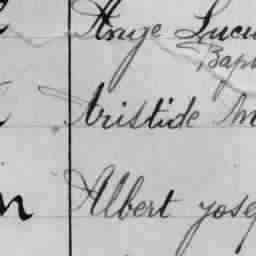 Ange Lucu
Bapt
Aristide M
n Albert Jose